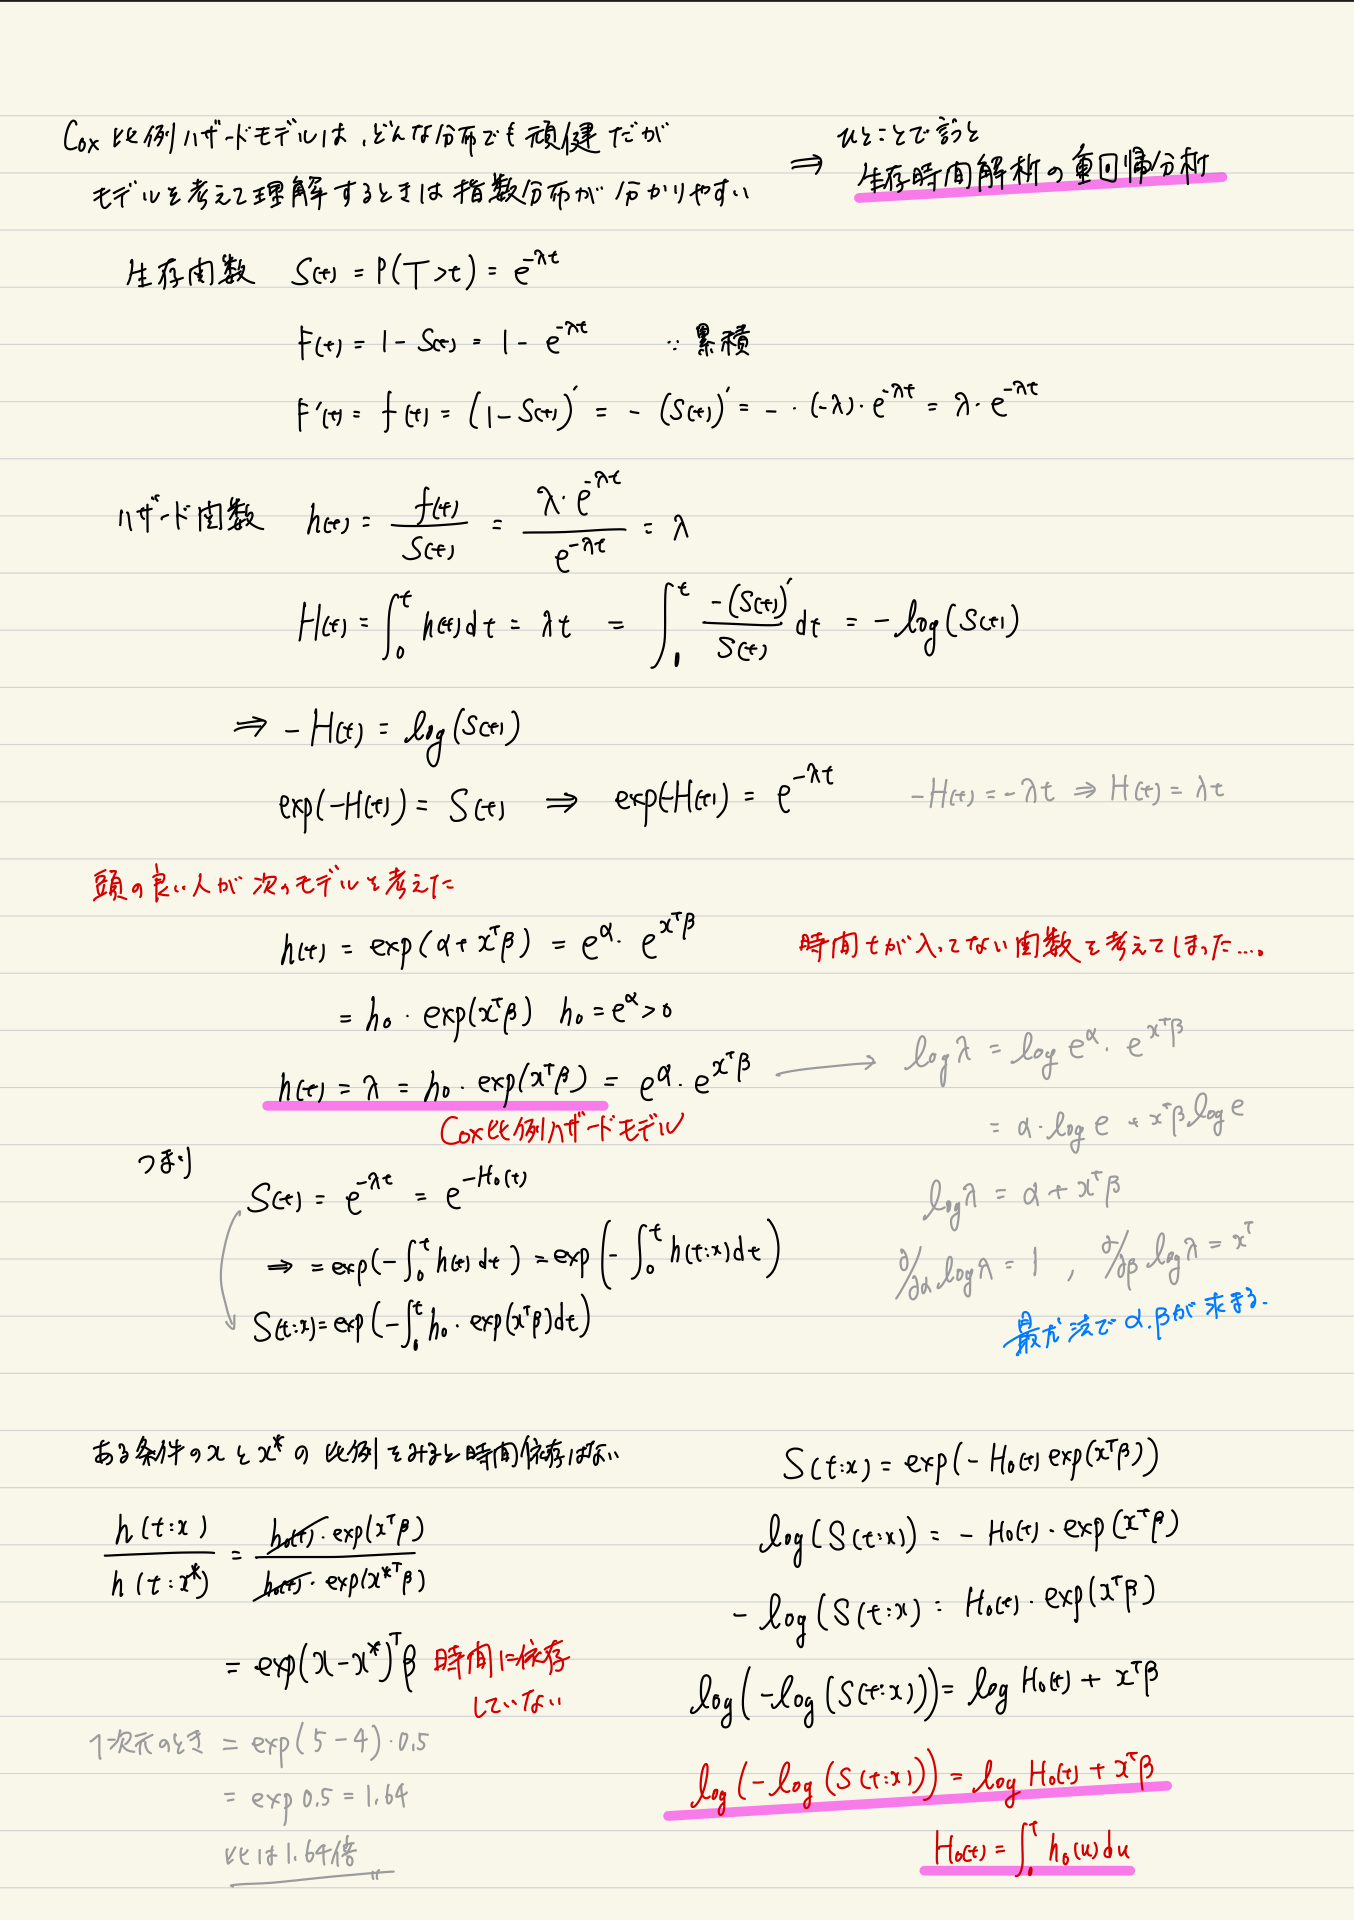 Cox比例ハザードモデルは、どんな分布でも頑健だが
モデルを考えて理解するときは指数分布が分かりやすい
⇒ ひとことで言うと
生存時間解析の重回帰分析
生存関数 S(t) = P(T>t) = e^{-λt}
F(t) = 1 - S(t) = 1 - e^{-λt} ∵ 累積
F'(t) = f(t) = (1-S(t))' = -(S(t))' = -・(-λ)・e^{-λt} = λ・e^{-λt}
ハザード関数 h(t) = f(t)/S(t) = λ・e^{-λt}/e^{-λt} = λ
H(t) = ∫_0^t h(t)dt = λt = ∫_0^t -(S(t))'/S(t) dt = -log(S(t))
⇒ -H(t) = log(S(t))
exp(-H(t)) = S(t) ⇒ exp(-H(t)) = e^{-λt}
-H(t) = -λt ⇒ H(t) = λt
頭の良い人が次のモデルを考えた
h(t) = exp(α+x^Tβ) = e^α・e^{x^Tβ}
時間tが入ってない関数を考えてしまった…。
= h_0・exp(x^Tβ) h_0 = e^α > 0
h(t) = λ = h_0・exp(x^Tβ) = e^α・e^{x^Tβ}
Cox比例ハザードモデル
log λ = log e^α・e^{x^Tβ}
= α・log e + x^Tβ log e
log λ = α + x^Tβ
∂/∂α log λ = 1 , ∂/∂β log λ = x^T
最尤法でα.βが求まる.
つまり
S(t) = e^{-λt} = e^{-H_0(t)}
⇒ = exp(-∫_0^t h(t)dt) = exp(-∫_0^t h(t:x)dt)
S(t:x) = exp(-∫_0^t h_0・exp(x^Tβ)dt)
ある条件のxとx*の比例をみると時間依存はない
h(t:x)/h(t:x*) = h_0(t)・exp(x^Tβ)/h_0(t)・exp(x*^Tβ)
= exp(x-x*)^Tβ 時間に依存
していない
1次元のとき = exp(5-4)・0.5
= exp 0.5 = 1.64
比は1.64倍
S(t:x) = exp(-H_0(t) exp(x^Tβ))
log(S(t:x)) = -H_0(t)・exp(x^Tβ)
-log(S(t:x) = H_0(t)・exp(x^Tβ)
log(-log(S(t:x))) = log H_0(t) + x^Tβ
log(-log(S(t:x))) = log H_0(t) + x^Tβ
H_0(t) = ∫_0^t h_0(u)du